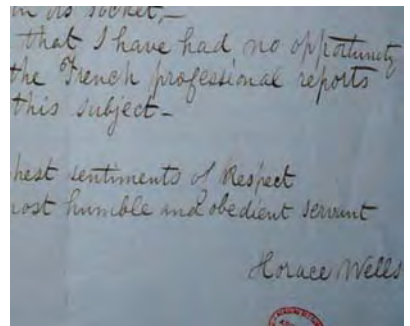 in its socket,—
that I have had no opportunity
the French professional reports
this subject—
hest sentiments of Respect
ost humble and obedient servant
Horace Wells